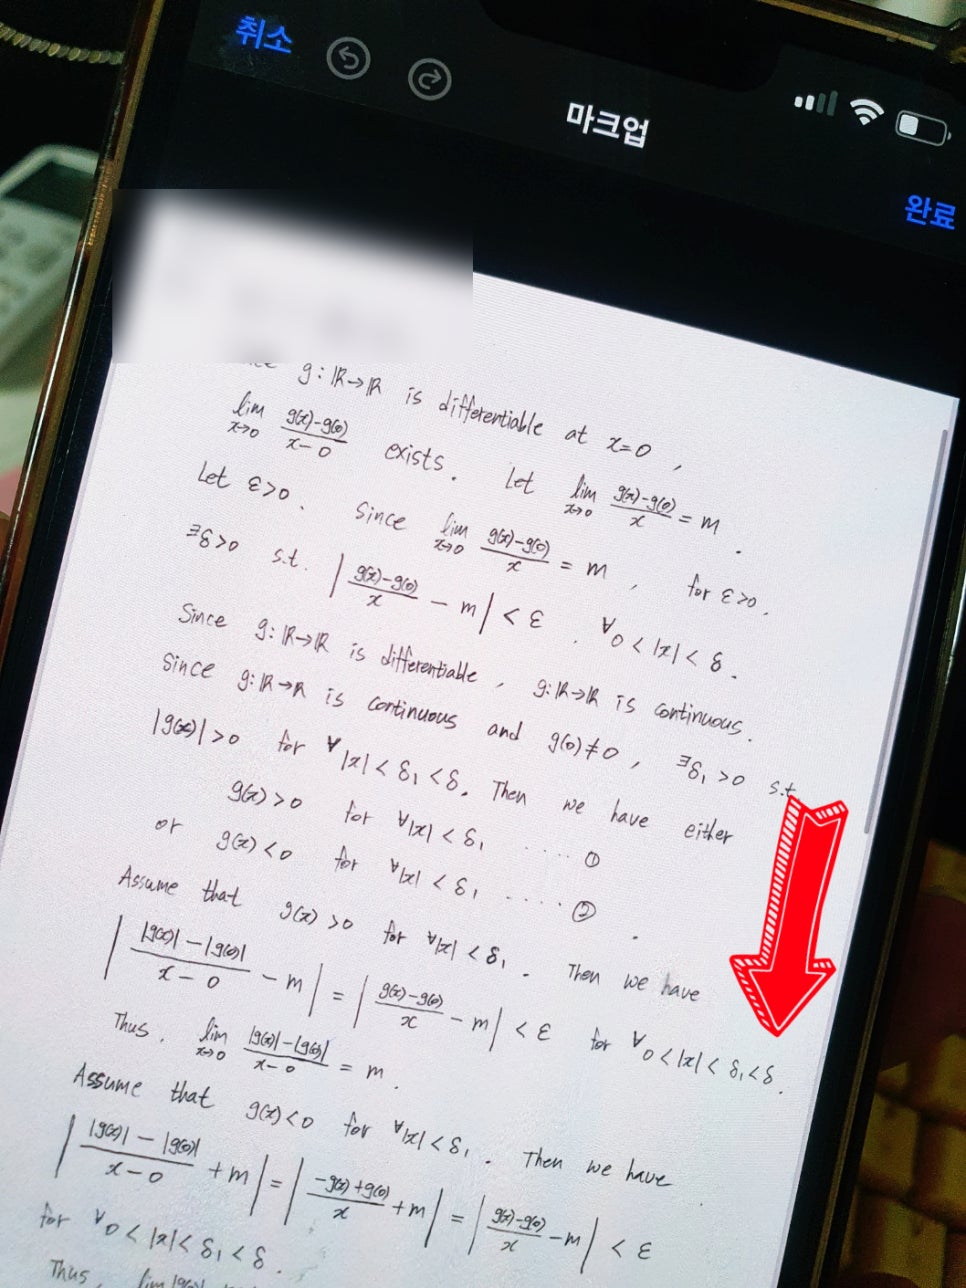 취소
마크업
완료
g: ℝ→ℝ is differentiable at x=0,
lim_{x→0} (g(x)-g(0))/(x-0) exists. Let lim_{x→0} (g(x)-g(0))/x = m.
Let ε>0. Since lim_{x→0} (g(x)-g(0))/x = m, for ε>0.
∃δ>0 s.t. |(g(x)-g(0))/x - m| < ε. ∀0<|x|<δ.
Since g: ℝ→ℝ is differentiable, g: ℝ→ℝ is continuous.
Since g: ℝ→ℝ is continuous and g(0)≠0, ∃δ₁>0 s.t.
|g(x)|>0 for ∀|x|<δ₁<δ. Then we have either
g(x)>0 for ∀|x|<δ₁ ····· ①
or g(x)<0 for ∀|x|<δ₁ ····· ②.
Assume that g(x)>0 for ∀|x|<δ₁. Then we have
|(|g(x)|-|g(0)|)/(x-0) - m| = |(g(x)-g(0))/x - m| < ε for ∀0<|x|<δ₁<δ.
Thus, lim_{x→0} (|g(x)|-|g(0)|)/(x-0) = m.
Assume that g(x)<0 for ∀|x|<δ₁. Then we have
|(|g(x)|-|g(0)|)/(x-0) + m| = |(-g(x)+g(0))/x + m| = |(g(x)-g(0))/x - m| < ε
for ∀0<|x|<δ₁<δ.
Thus, lim |g(x)|